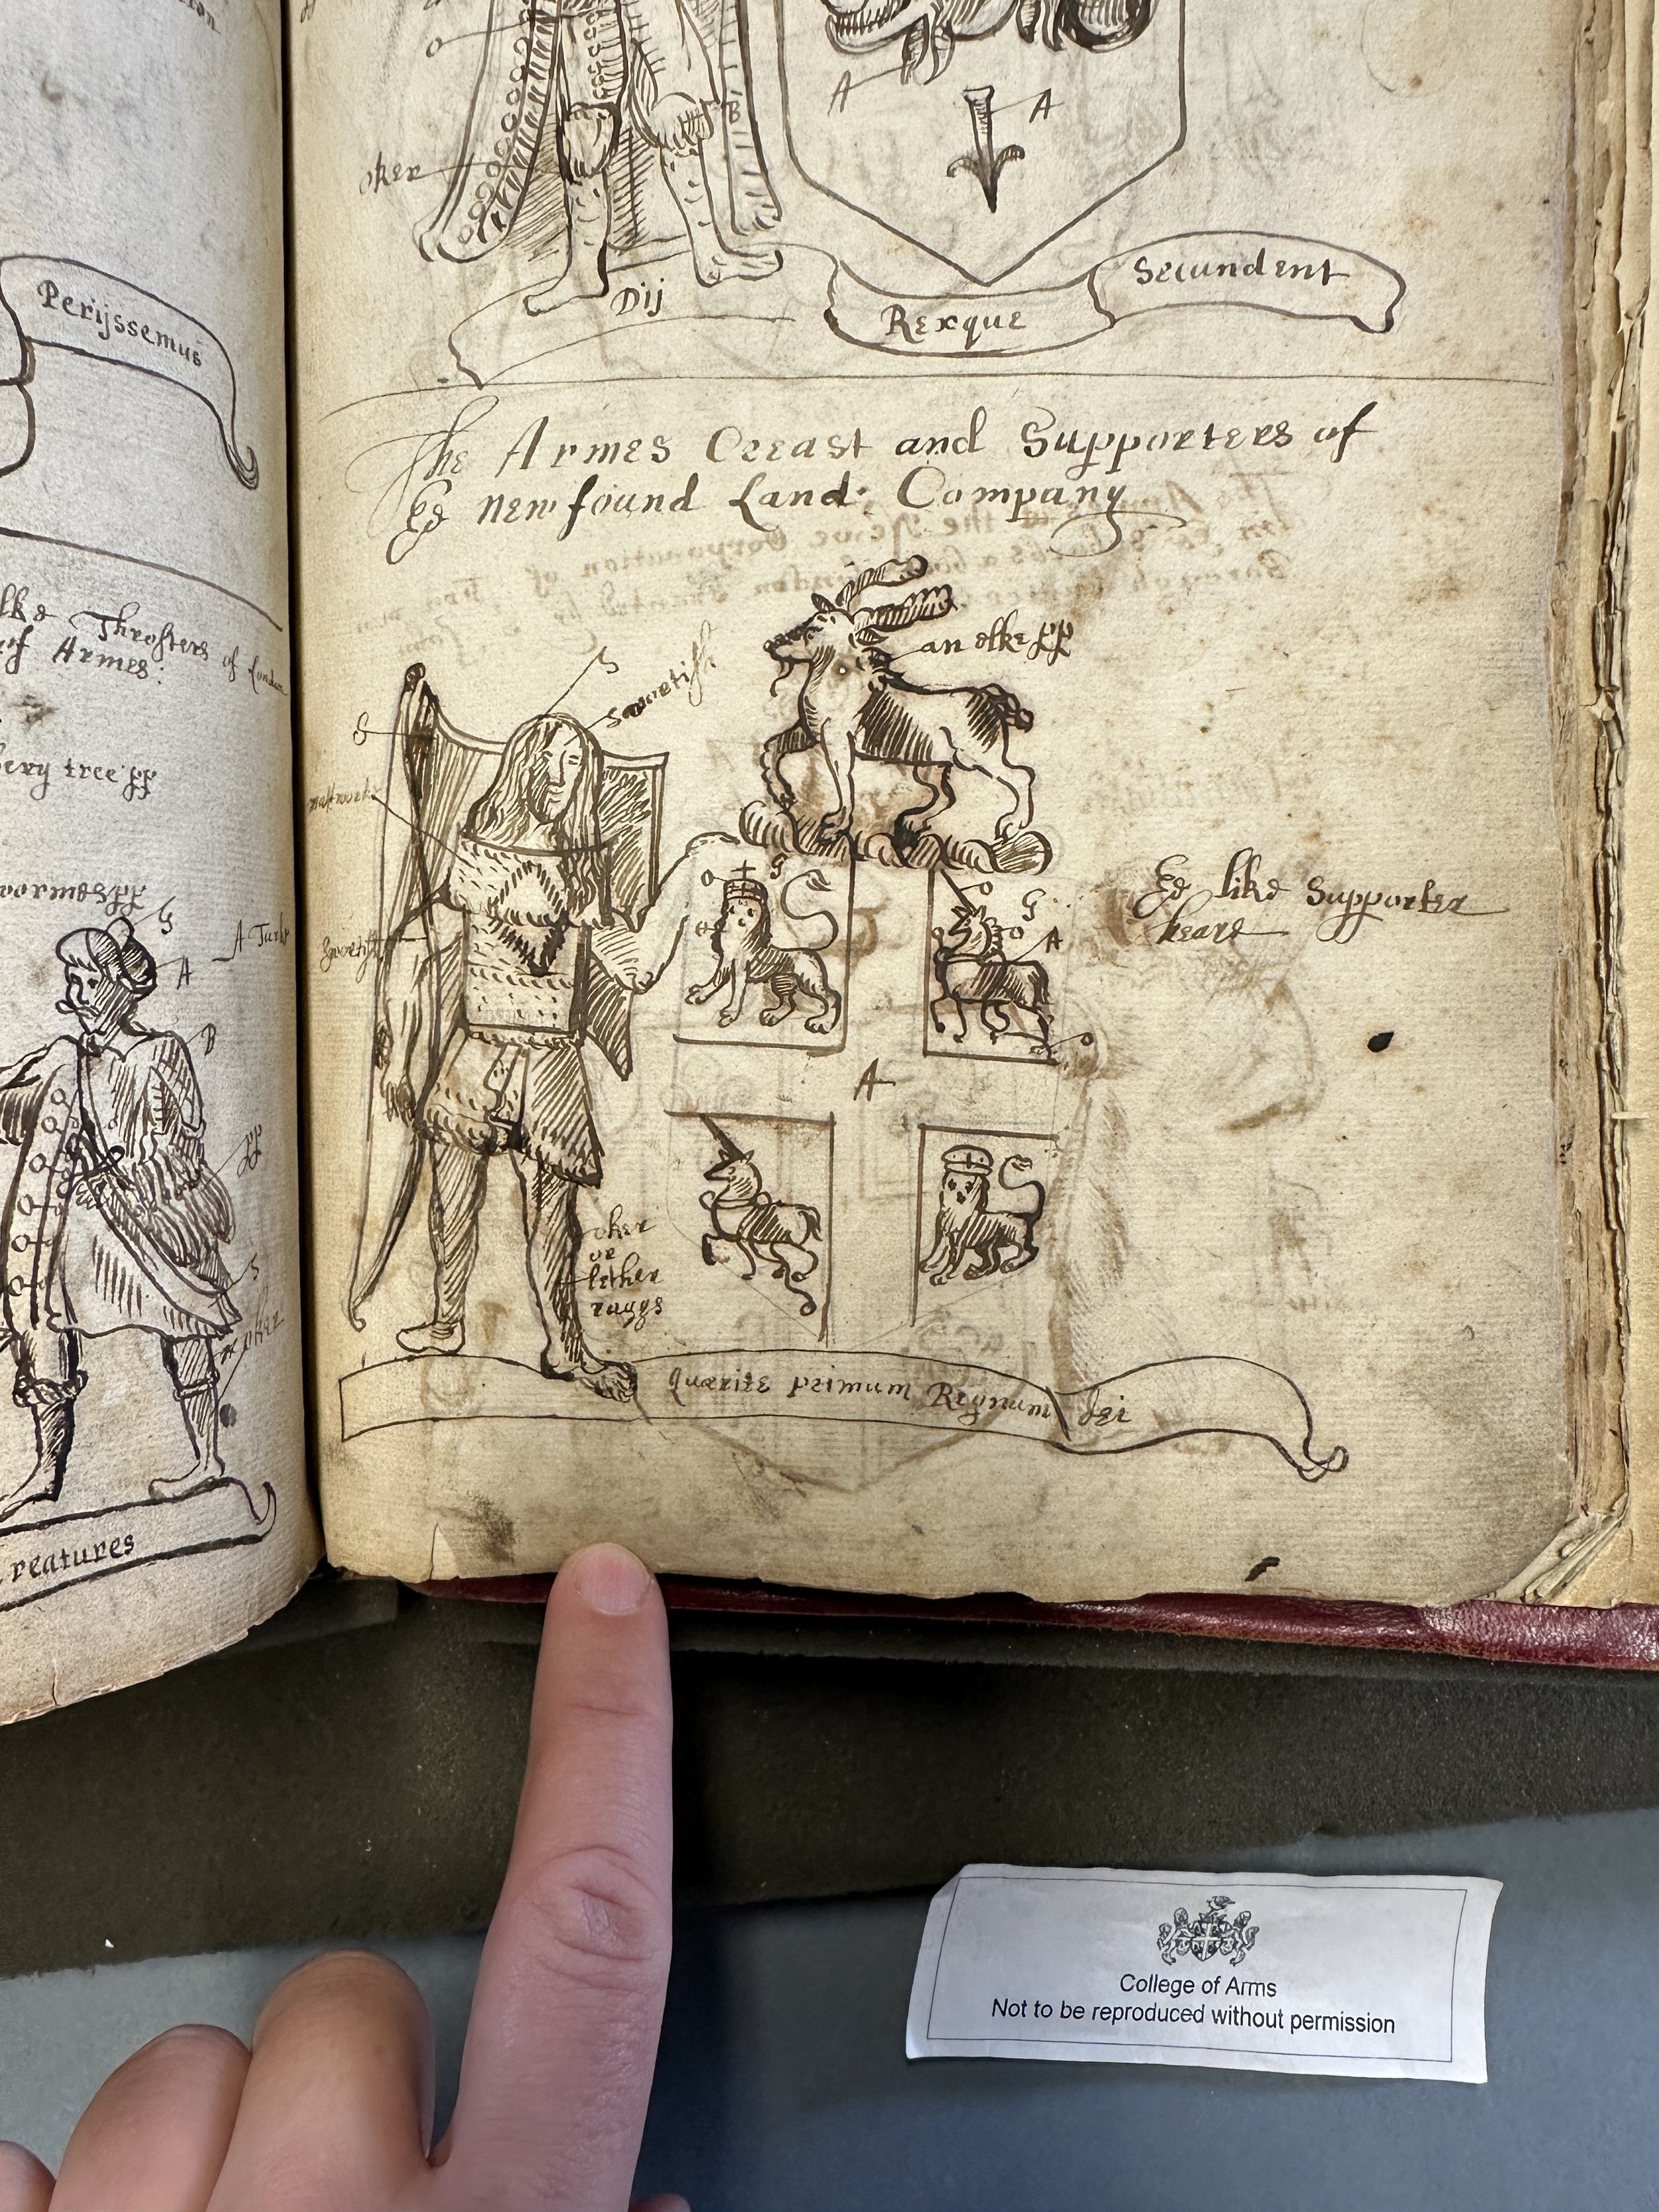 Perijssemus
lke Throsters of London
of Armes:
ery tree pp
wormes pp
G
A
B
pp
S
oker
reatures
O
oker
A
A
B
Dij
Rexque
Secundent
The Armes Creast and Supporters of
Ye new found Land: Company
an elke pp
S
swartish
G
O
G
O
O
G
O
A
O
Ye like Supporter
heare
A
oker
or
lether
raggs
Quærite primum Regnum dei
College of Arms
Not to be reproduced without permission